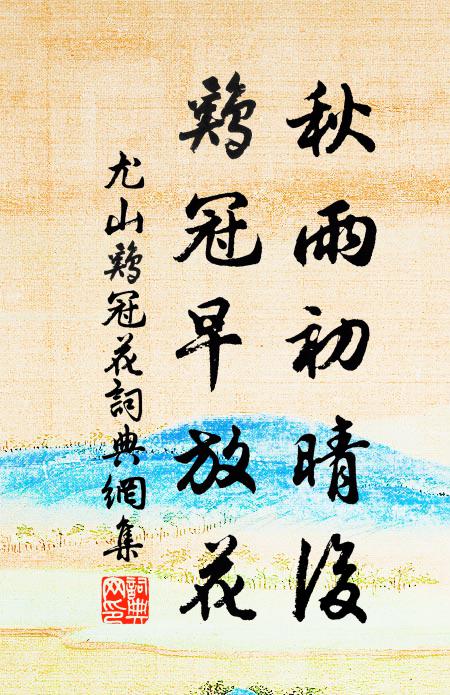 秋雨初晴後
鷄冠早放花
尤山鷄冠花詞典網集
詞典網印